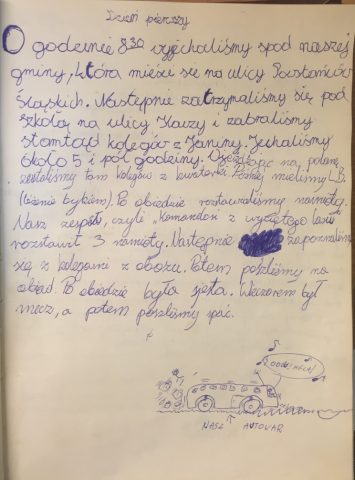 Dzień pierwszy
O godzinie 8³⁰ wyjechaliśmy spod naszej
gminy, która mieści się na ulicy Powstańców
Śląskich. Następnie zatrzymaliśmy się pod
szkołą na ulicy Kauzy i zabraliśmy
stamtąd kolegów z Janiny. Jechaliśmy
około 5 i pół godziny. na polanę
zastaliśmy tam kolegów z kwaterki. Później mieliśmy L.B.
(leżenie bykiem). Po obiedzie rozstawialiśmy namioty.
Nasz zespół, czyli "Komandosi z wyciętego lasu"
rozstawił 3 namioty. Następnie zapoznaliśmy
się z kolegami z obozu. Potem poszliśmy na
obiad. Po obiedzie była sjesta. Wieczorem był
mecz, a potem poszliśmy spać.
NASZ AUTOKAR